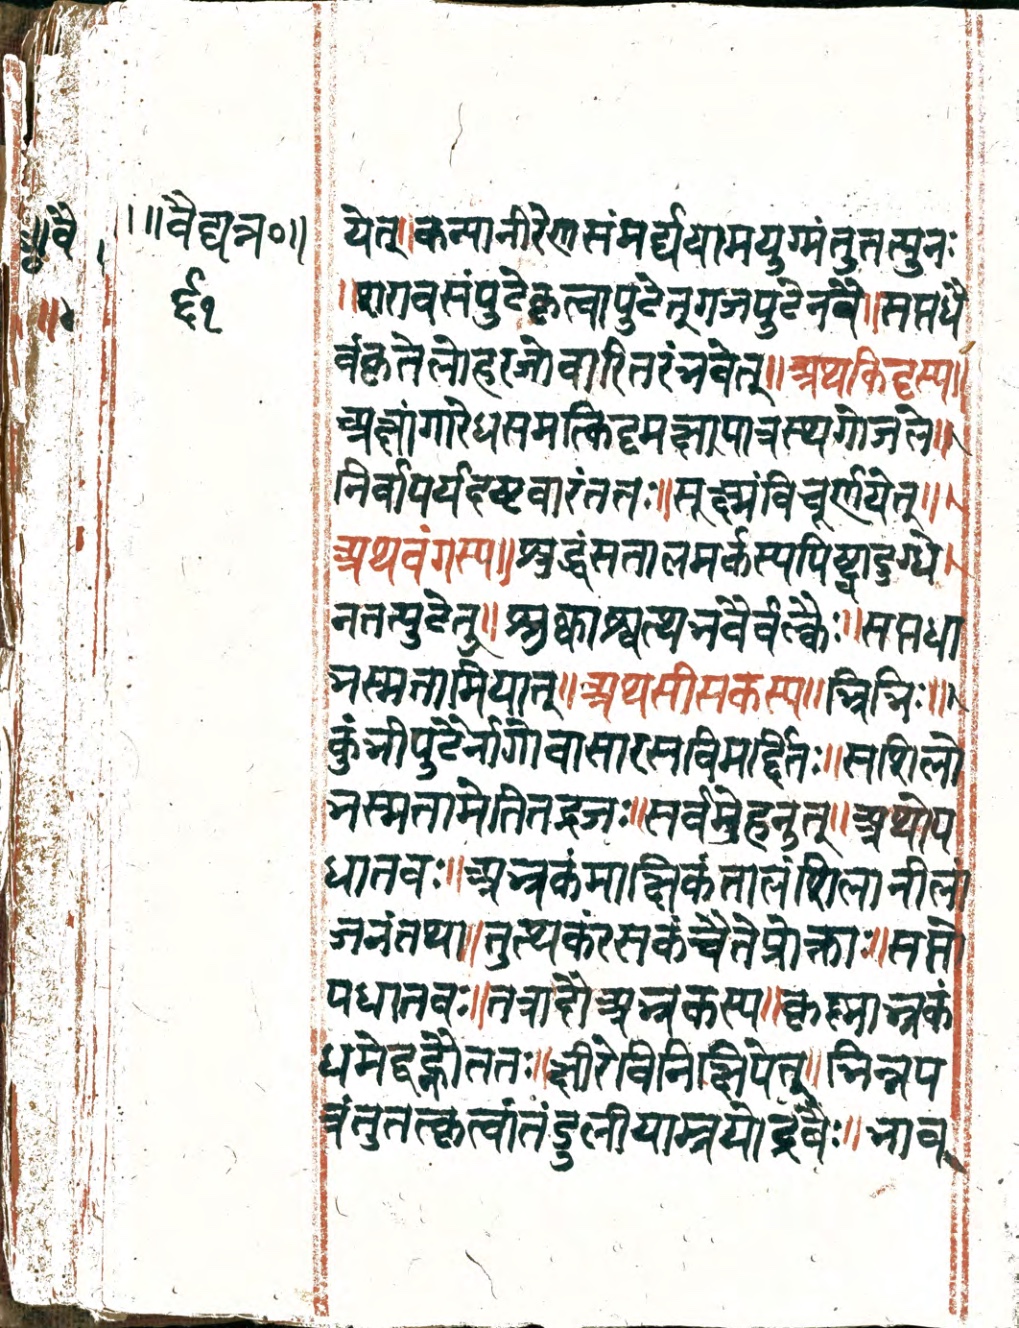 ॥वै
।॥वैद्यत्र०॥
६१
येत्॥कन्यानीरेणसंमर्द्ययामयुग्मंतुतत्पुनः
॥शरावसंपुटेकृत्वापुटेत्गजपुटेनवै॥सप्तधै
र्वकृतेलोहरजोवारितरंभवेत्॥अथकिट्टस्य॥
अक्षांगारेधसमत्किट्टमक्षापात्रस्थगोजले॥
निर्वापर्यदष्टवारंततः॥सूक्ष्मंविचूर्णयेत्॥
अथवंगस्य॥शुद्धंसतालमर्कस्यपिष्ट्वादुग्धे
नतत्पुटेत्॥शुष्काश्वत्थभवैर्वल्कैः॥सप्तधा
भस्मतामियात्॥अथसीसकस्य॥त्रिभिः॥
कुंभीपुटैर्नागोवासारसविमर्द्दितः॥सशिलो
भस्मतामेतितद्रजः॥सर्वमेहनुत्॥अथोप
धातवः॥अभ्रकंमाक्षिकंतालंशिलानीलां
जनंतथा॥तुत्थकंरसकंचैतेप्रोक्ताः॥सप्तो
पधातवः॥तत्रादौअभ्रकस्य॥कृष्माभ्रकं
धमेद्वह्नौततः॥क्षीरेविनिक्षिपेत्॥भिन्नप
त्रंतुतत्कृत्वातंडुलीयाम्लयोद्रवैः॥भाव